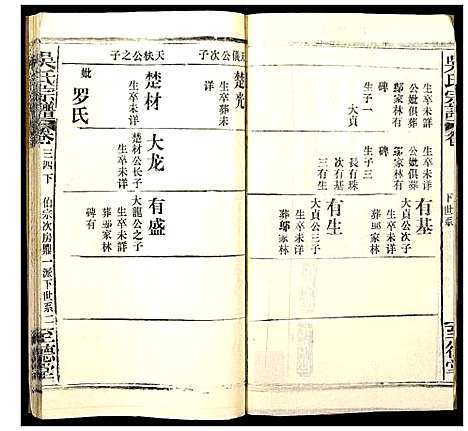 吳氏宗譜
卷
下世系
至德堂
生卒未詳
公妣俱葬
鄔家林
碑有
生子一
大貞
公妣俱葬
生卒未詳
生子三
長有珠
次有基
三有生
有基
大貞公次子
生卒未詳
葬鄔家林
有生
大貞公三子
生卒未詳
葬鄔家林
楚光
天儀公次子
生卒葬未
詳
天枤公之子
楚材
生卒未詳
妣
罗氏
大龙
楚材公長子
生卒未詳
有盛
大龍公之子
生卒未詳
葬鄔家林
碑有
吳氏宗譜
卷
三四下
伯宗次房鼎一派下世系
二
至德堂